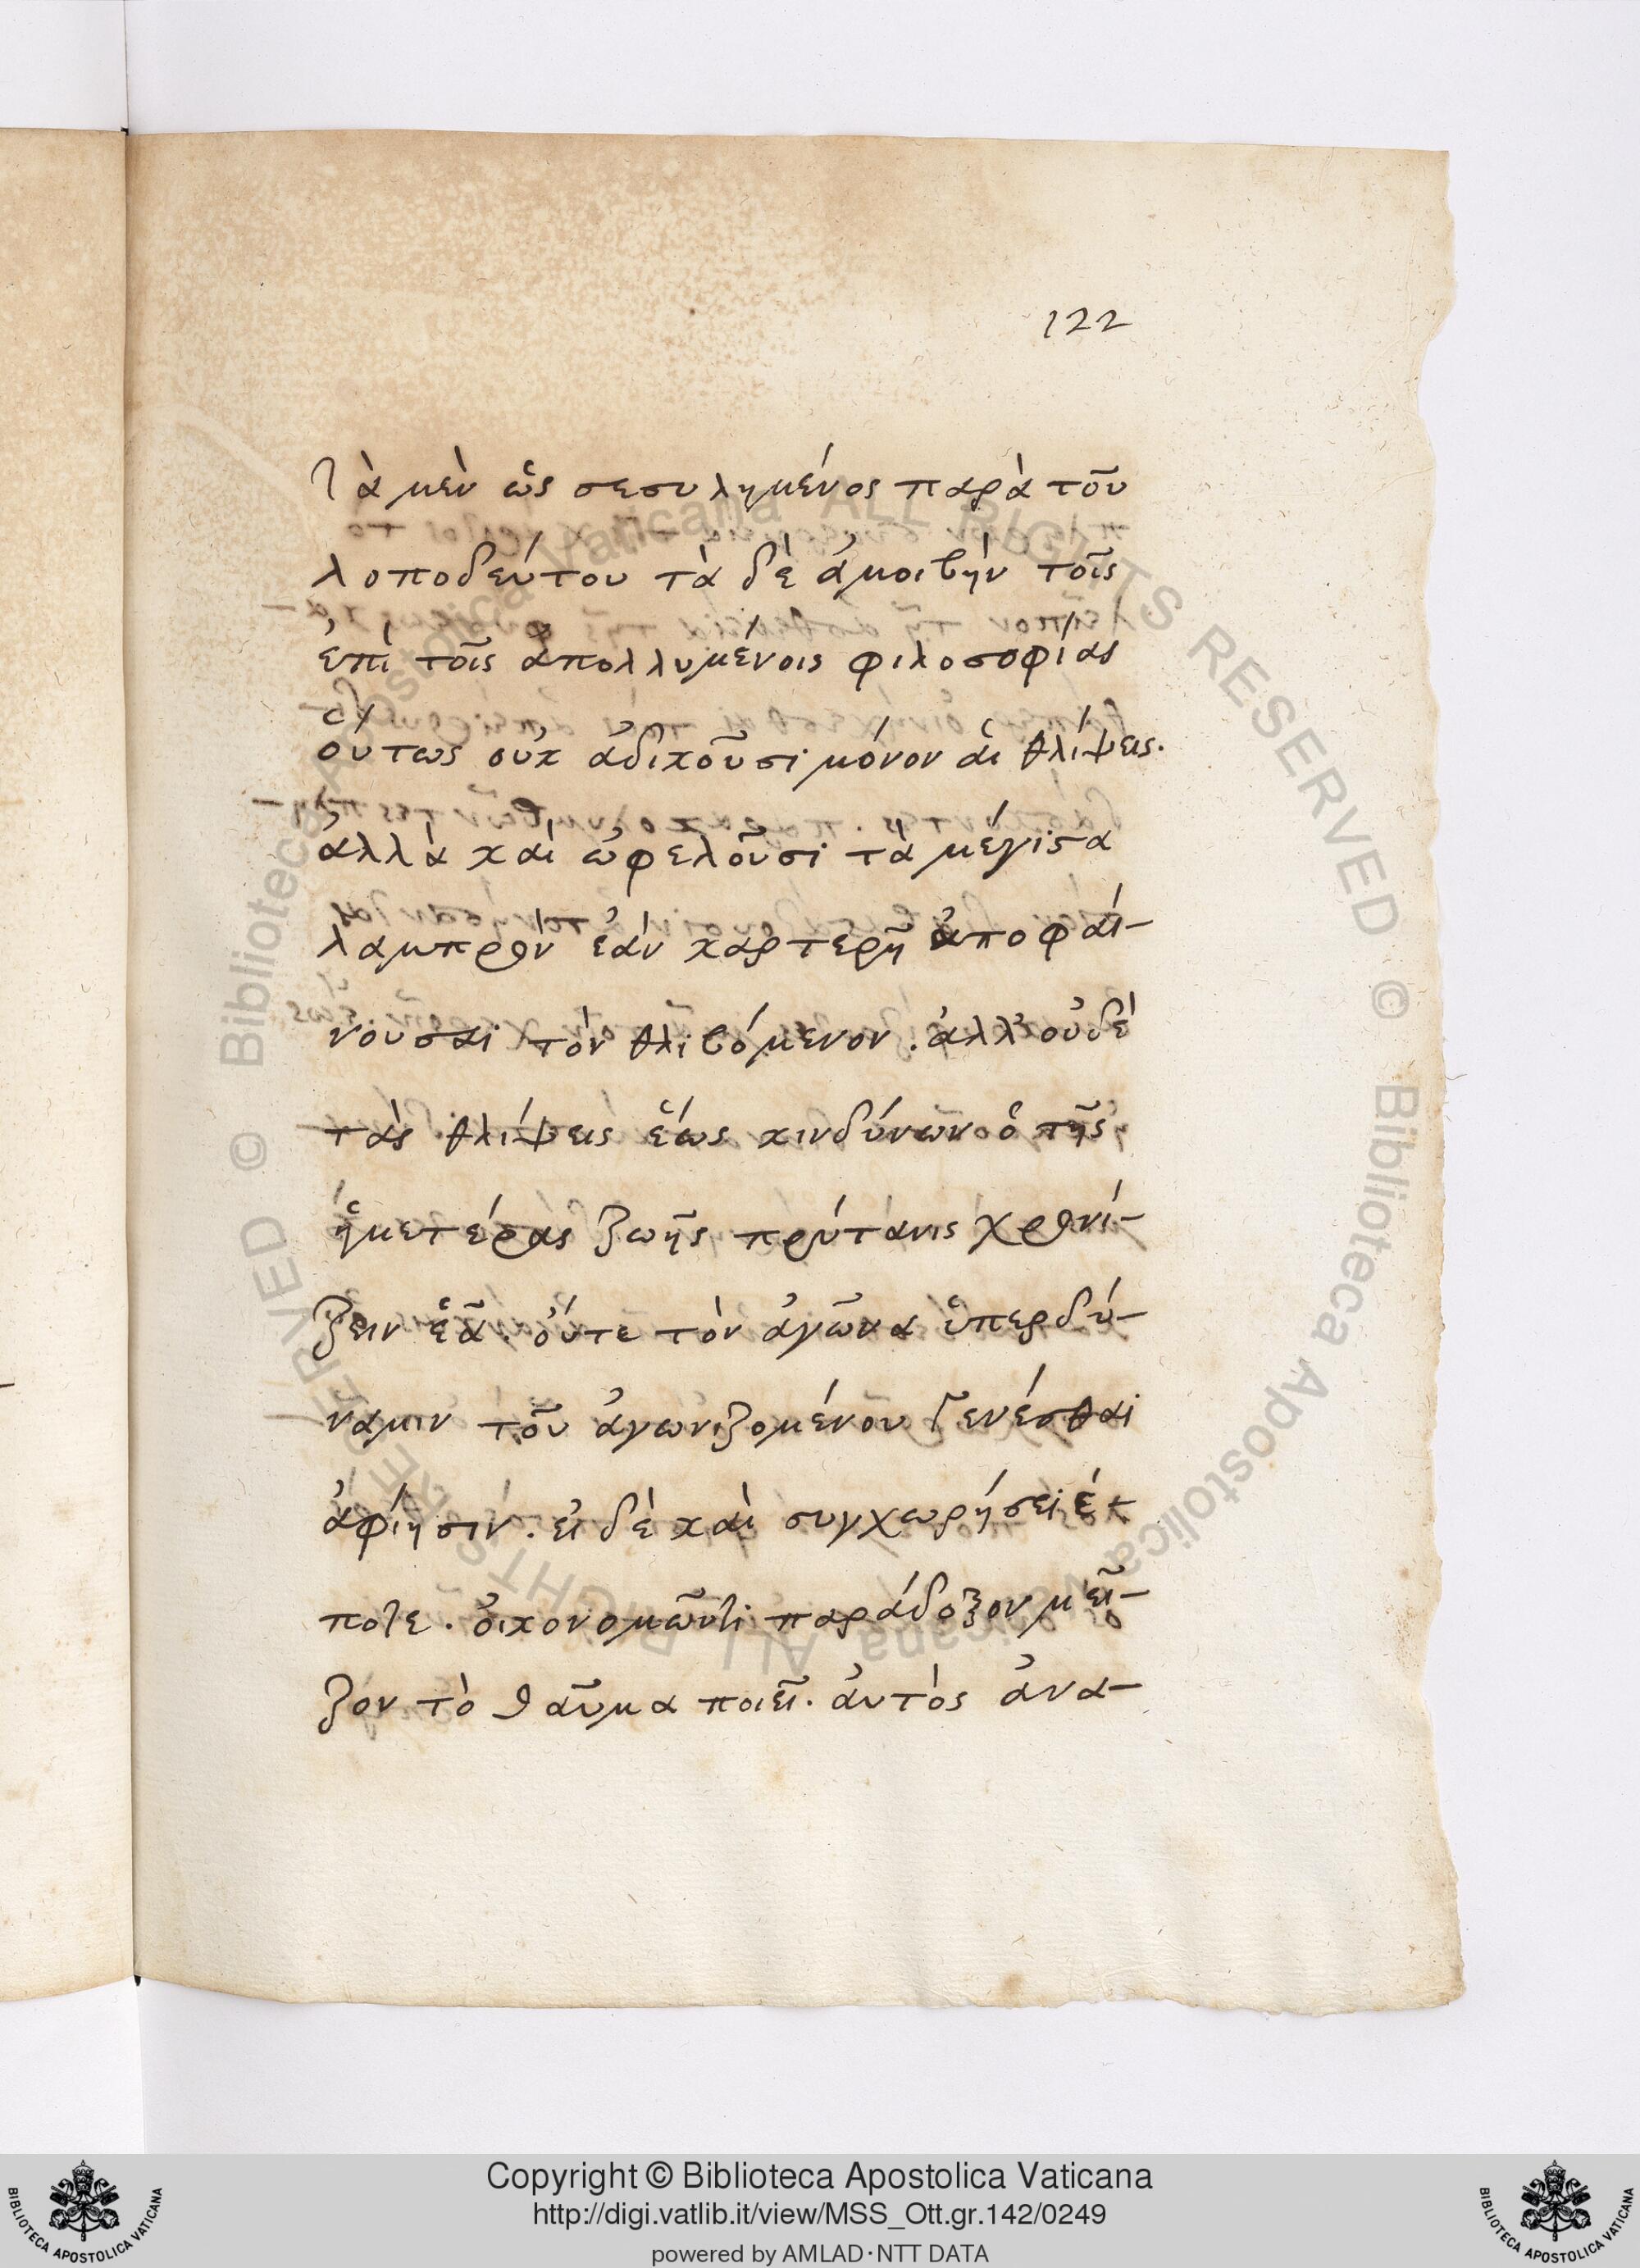 122
τὰ μὲν ὡς σεσυλημένος παρὰ τοῦ
λοποδεύτου τὰ δὲ ἀμοιβὴν τοῖς
ἐπὶ τοῖς ἀπολλυμένοις φιλοσοφίας
οὕτως οὐκ ἀδικοῦσι μόνον ἁι θλίψεις.
ἀλλὰ καὶ ὠφελοῦσι τὰ μέγιστα
λαμπρὸν ἐὰν καρτερῆ ἀποφαί-
νουσαι τὸν θλιβόμενον. ἀλλ' οὐδὲ
τὰς θλίψεις ἕως κινδύνων ὁ τῆς
ἡμετέρας ζωῆς πρύτανις χρονί-
ζειν ἐᾶ. ὄυτε τὸν ἀγῶνα ὑπερδύ-
ναμιν τοῦ ἀγωνιζομένου γενέσθαι
ἀφίησιν. ἐι δὲ καὶ συγχωρήσει
ποτε. ὀικονομῶντι παράδοξον μεῖ-
ζον τὸ θαῦμα ποιεῖ. ἀυτὸς ἀνα-
Copyright © Biblioteca Apostolica Vaticana
http://digi.vatlib.it/view/MSS_Ott.gr.142/0249
powered by AMLAD·NTT DATA
BIBLIOTECA APOSTOLICA VATICANA
BIBLIOTECA APOSTOLICA VATICANA